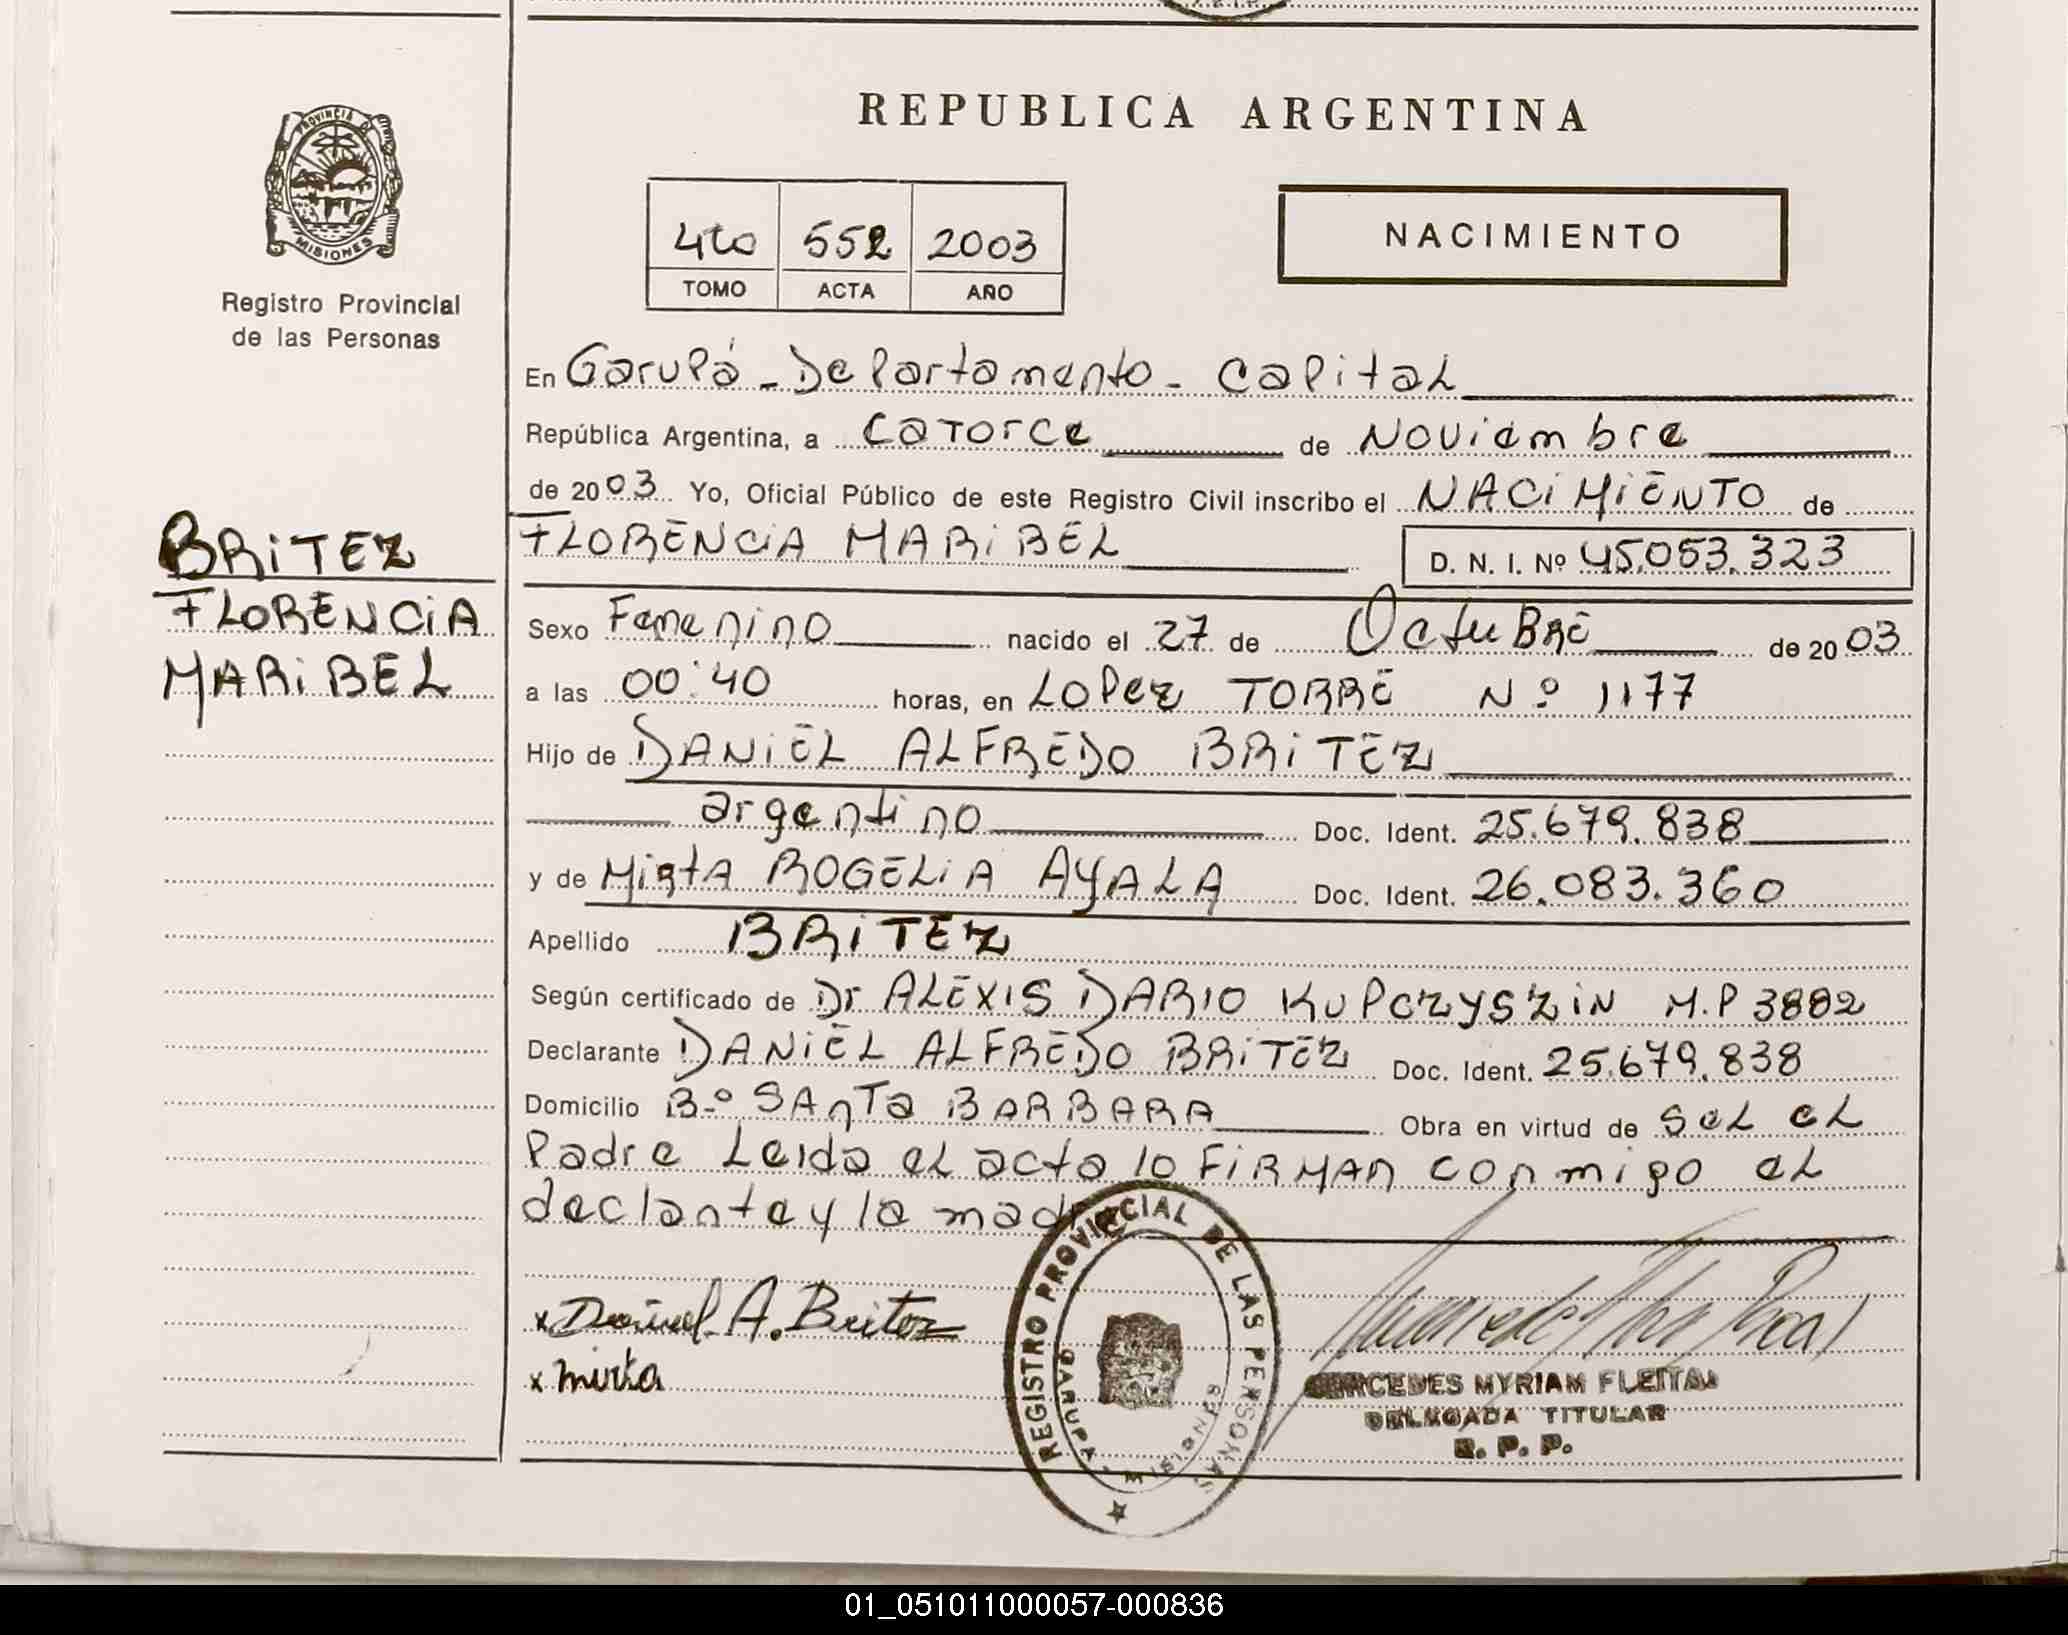 REPUBLICA ARGENTINA
PROVINCIA D
MISIONES
Registro Provincial
de las Personas
4to 552 2003
TOMO ACTA AÑO
NACIMIENTO
En Garupá - Departamento - Capital
República Argentina, a Catorce de Noviembre
de 2003 Yo, Oficial Público de este Registro Civil inscribo el NACIMIENTO de
FLORENCIA MARIBEL D. N. I. Nº 45.053.323
BRITEZ
FLORENCIA
MARIBEL
Sexo Femenino nacido el 27 de Octubre de 2003
a las 00:40 horas, en Lopez TORRE Nº 1177
Hijo de DANIEL ALFREDO BRITEZ
argentino Doc. Ident. 25.679.838
y de Mirta ROGELIA AYALA Doc. Ident. 26.083.360
Apellido BRITEZ
Según certificado de Dr ALEXIS DARIO KUPCZYSZIN M.P 3882
Declarante DANIEL ALFREDO BRITEZ Doc. Ident. 25.679.838
Domicilio B-º SAnTa BARBARA Obra en virtud de SeL eL
Padre Leida eL acta lo FiRMAn conmigo eL
declante y la madre
x Daniel A. Britez
x mirta
REGISTRO PROVINCIAL DE LAS PERSONAS
GARUPA - MISIONES
MERCEDES MYRIAM FLEITAS
DELEGADA TITULAR
R. P. P.
01_051011000057-000836